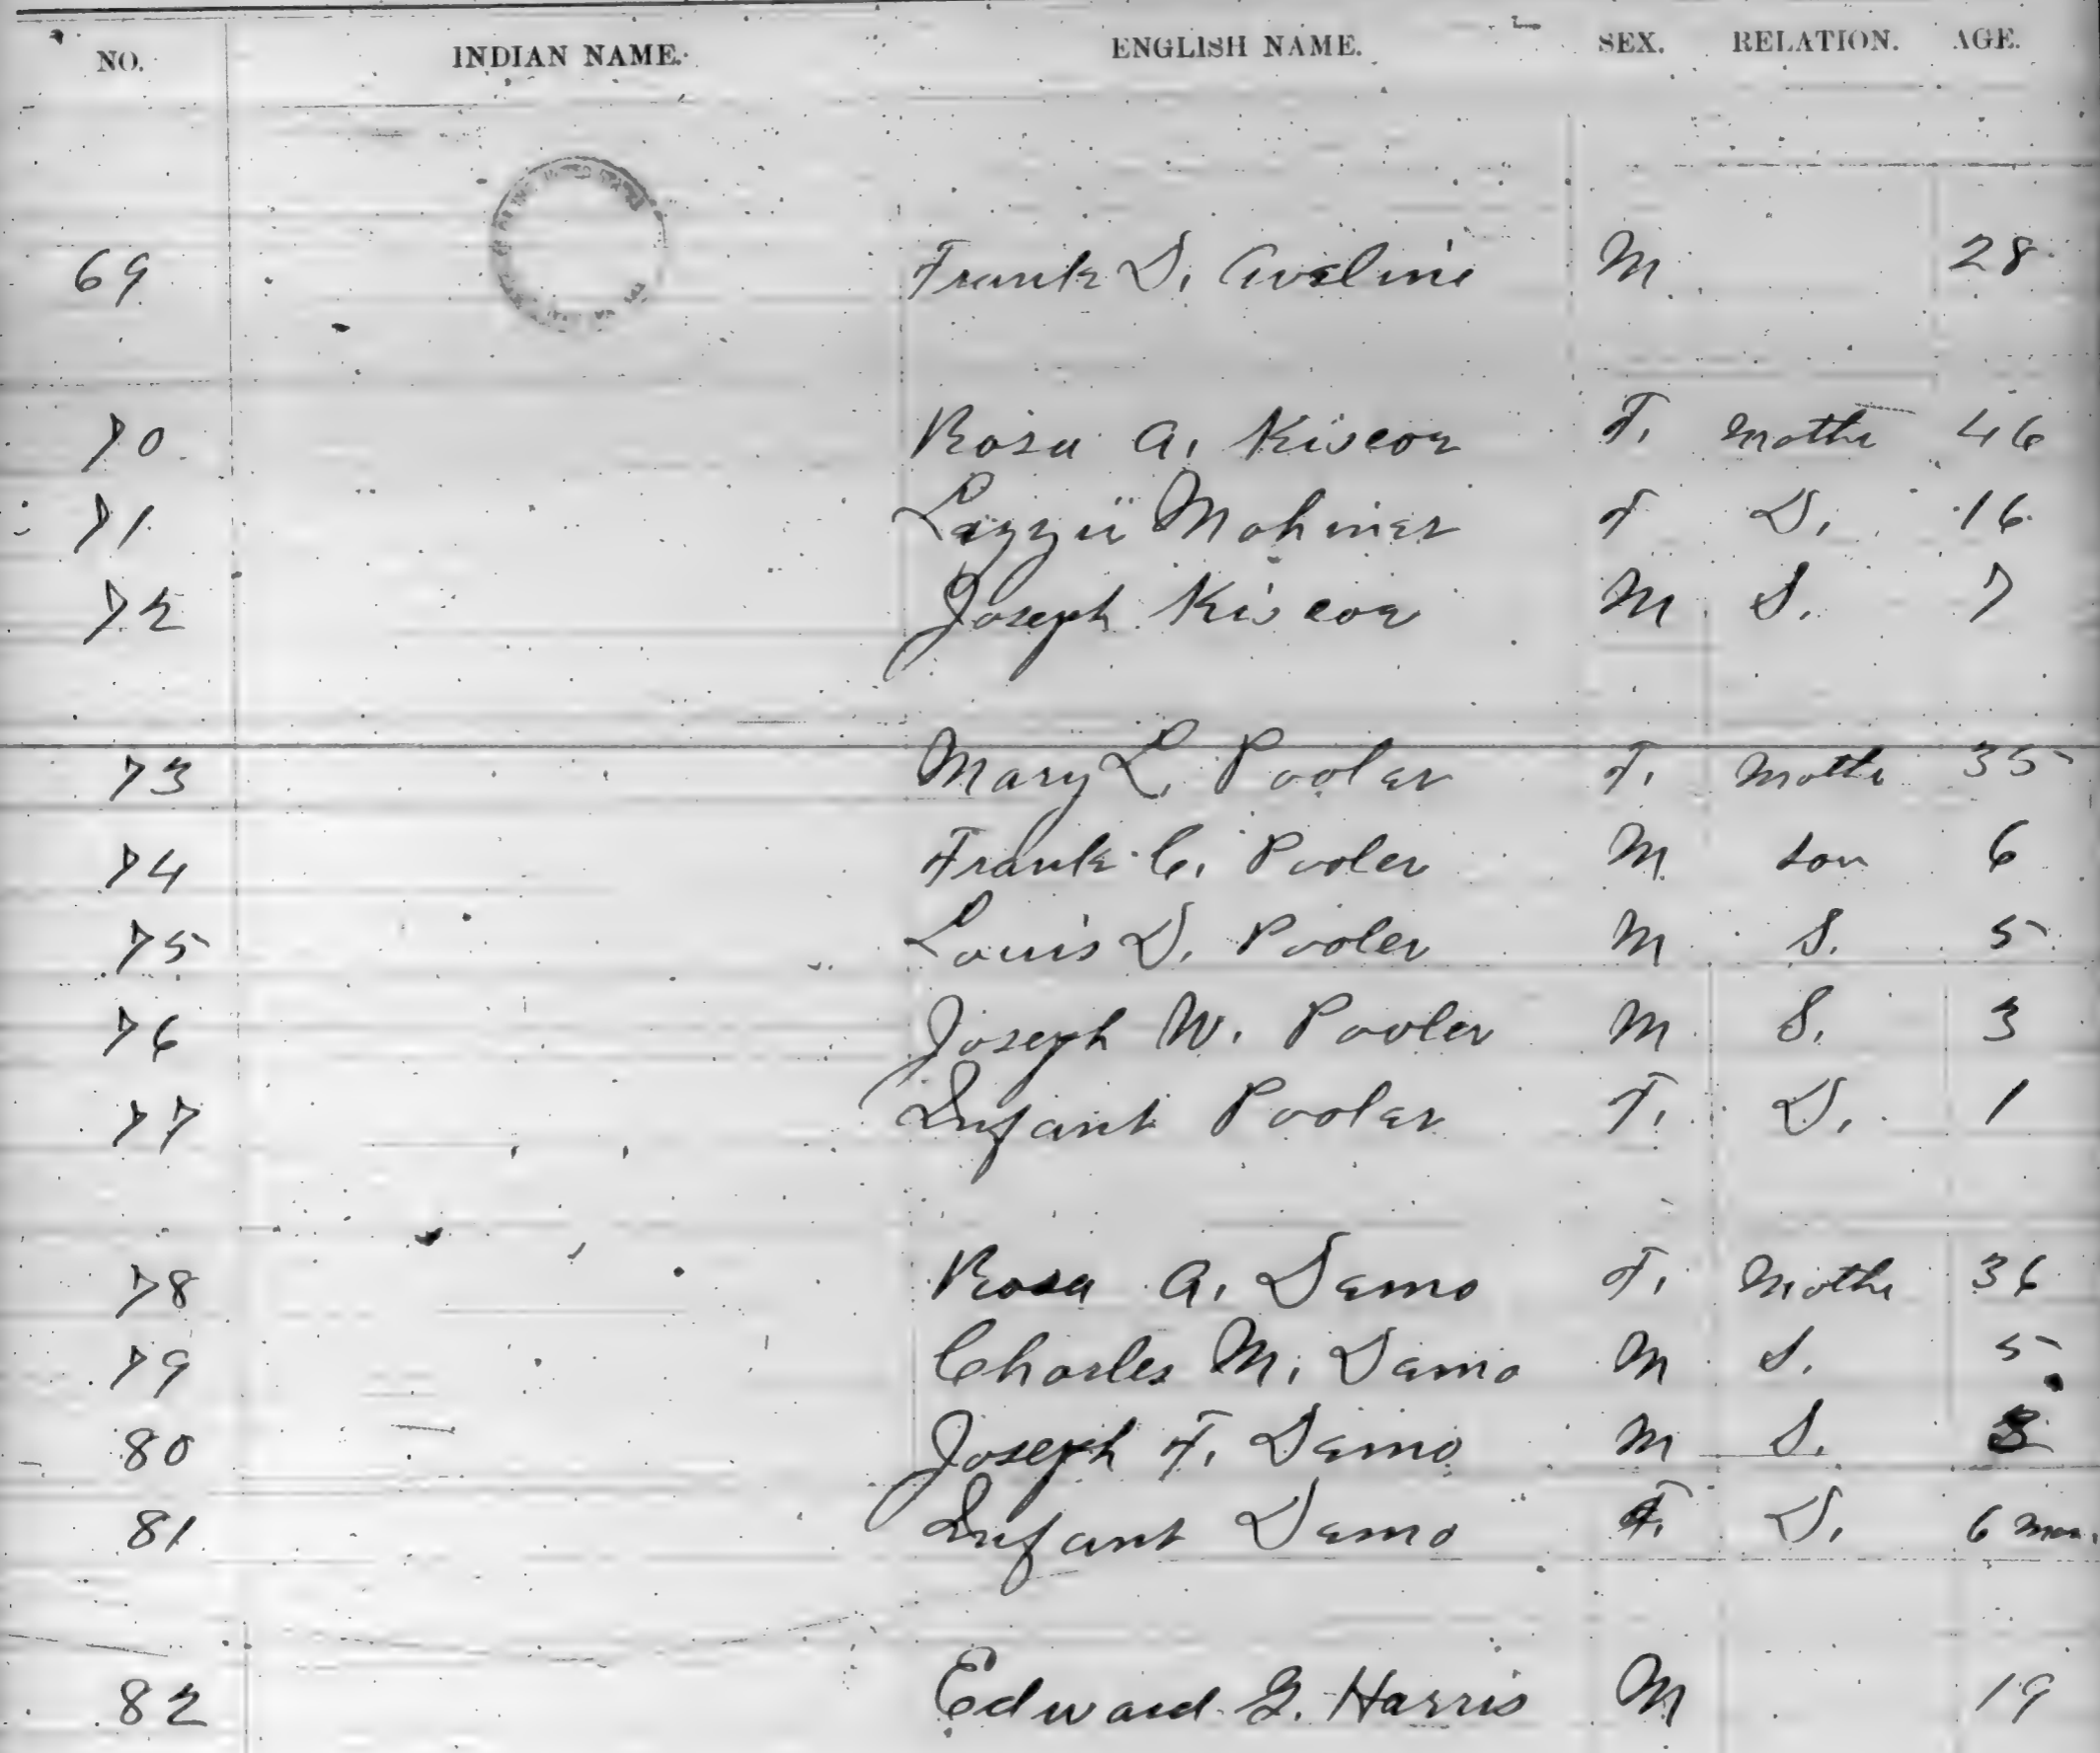 NO. INDIAN NAME. ENGLISH NAME. SEX. RELATION. AGE.
69 Frank D. Aveline M 28
70 Rosa A. Kiscoe F. Mothe 46
71 Lizzie Mohiner F D. 16
72 Joseph Kiscoe M S. 7
73 Mary L. Pooler F. Mothe 35
74 Frank C. Pooler M son 6
75 Louis D. Pooler M S. 5
76 Joseph W. Pooler M S. 3
77 Infant Pooler F. D. 1
78 Rosa A. Demo F. Mothe 36
79 Charles M. Demo M S. 5
80 Joseph F. Demo M S. 3
81 Infant Demo F. D. 6 mos.
82 Edward G. Harris M 19